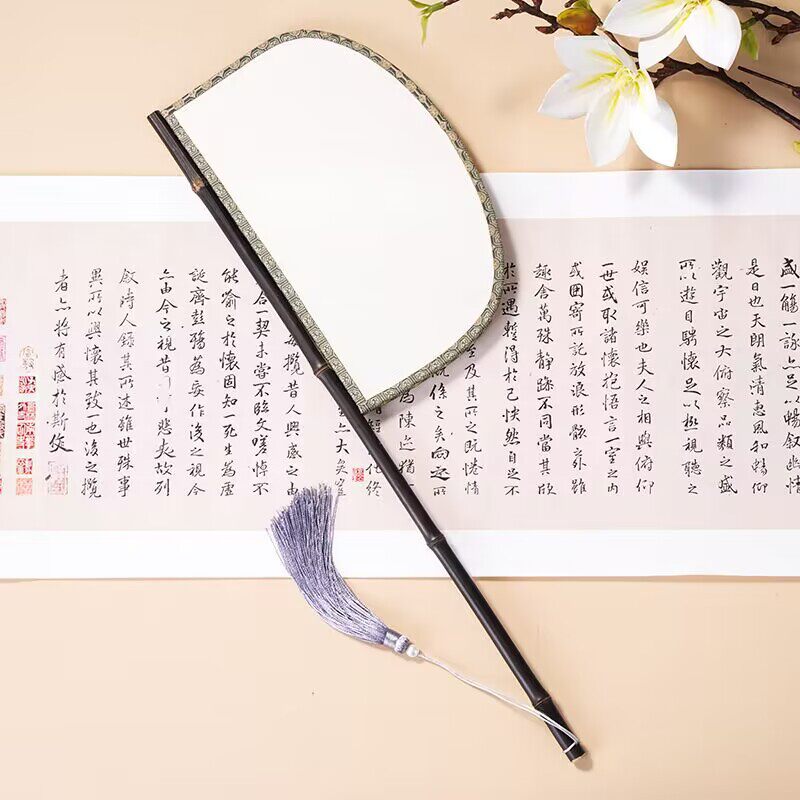 盛一觴一詠亦足以暢敘幽情
是日也天朗氣清惠風和暢仰
觀宇宙之大俯察品類之盛
所以遊目騁懷足以極視聽之
娛信可樂也夫人之相與俯仰
一世或取諸懷抱悟言一室之內
或因寄所託放浪形骸之外雖
趣舍萬殊靜躁不同當其欣
於所遇暫得於己怏然自足不
至及其所之既惓情
係之矣向之所
為陳迹猶
化終
亦大矣豈
每攬昔人興感之由
合一契未嘗不臨文嗟悼不
能喻之於懷固知一死生為虛
誕齊彭殤為妄作後之視今
亦由今之視昔悲夫故列
敘時人錄其所述雖世殊事
異所以興懷其致一也後之攬
者亦將有感於斯文